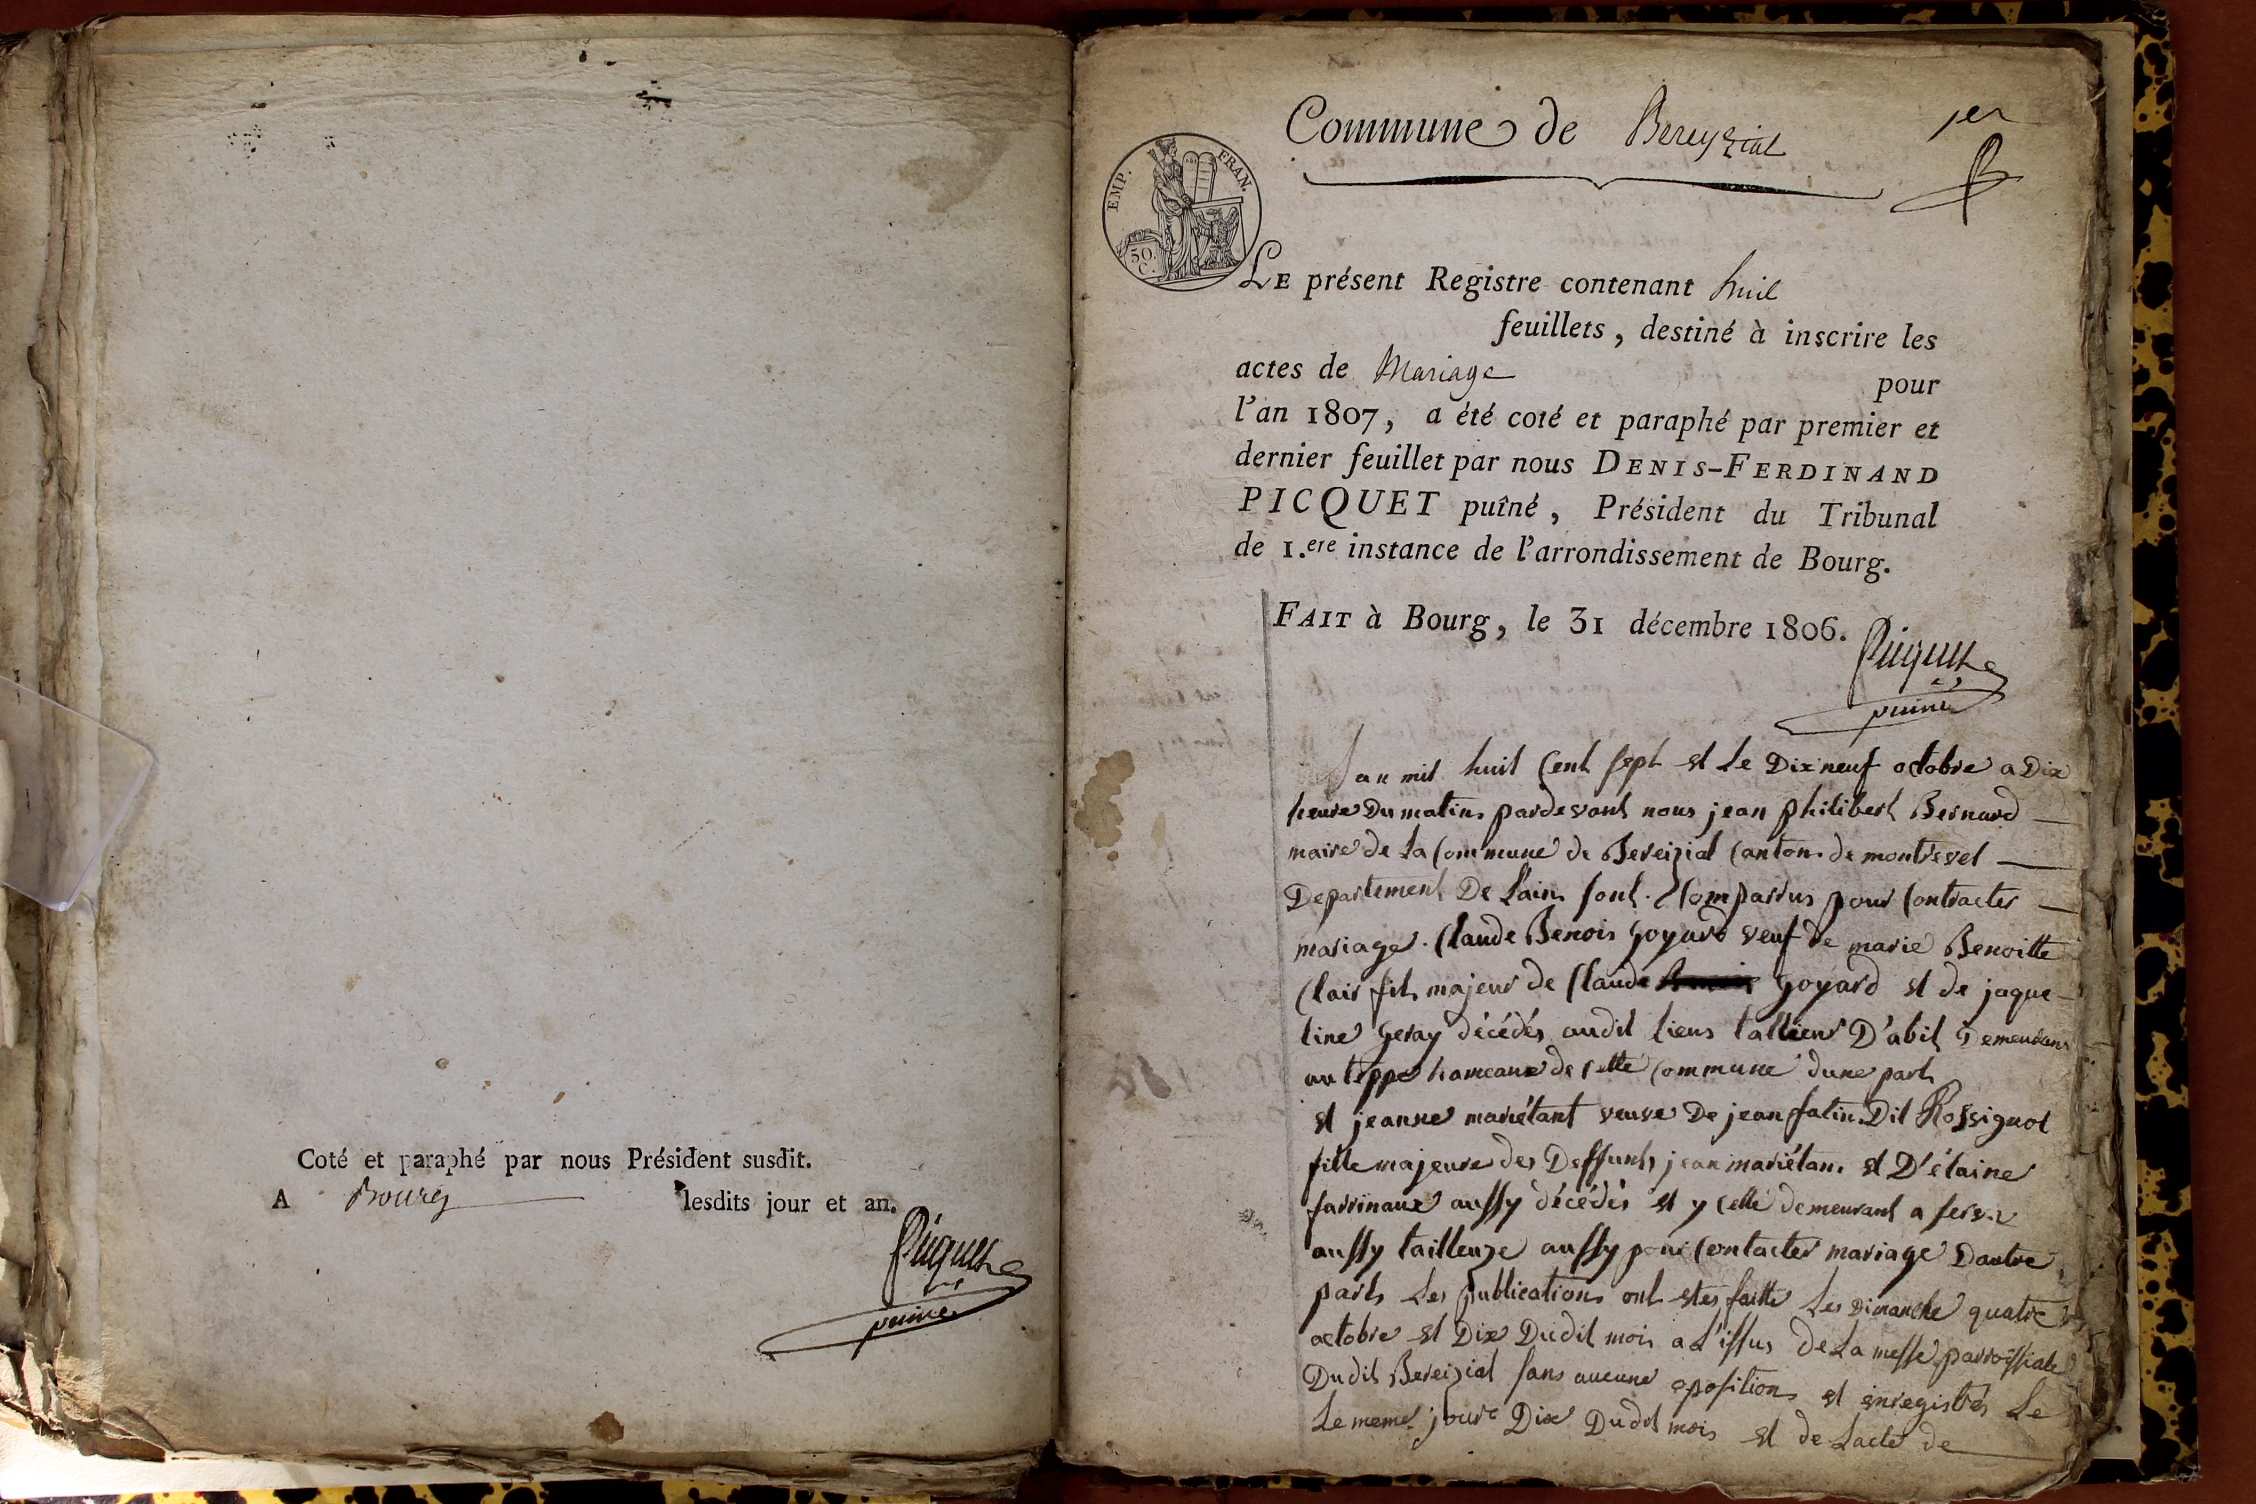 Coté et paraphé par nous Président susdit.
A Bourg lesdits jour et an.
Picquet
puiné
Commune de Bereyziat
1er
EMP. FRAN.
50 C.
LE présent Registre contenant huit
feuillets, destiné à inscrire les
actes de Mariage pour
l'an 1807, a été coté et paraphé par premier et
dernier feuillet par nous DENIS-FERDINAND
PICQUET puîné, Président du Tribunal
de 1.ere instance de l'arrondissement de Bourg.
FAIT à Bourg, le 31 décembre 1806.
Picquet
puiné
Lan mil huit Cent sept et Le Dix neuf octobre a Dix
heure Du matin pardevant nous jean philibert Bernard
maire de La Commune de Bereiziat Canton de montrevel
Departement De Lain sont Comparrus pour Contracter
mariage. Claude Benois Goyard veuf de marie Benoitte
Clair fils majeur de Claude Goyard et de jaque-
line Geray décédés audit lieus tallieur D'abit Demeurant
au teppe hameaux de Cette Commune dune part
et jeanne mariétant veuve De jean fatin Dit Rossignol
fille majeure des Deffunts jean mariétan et D'élaine
farrinaux aussy décédés et y Celle demeurant a
aussy tailleuze aussy pour Contacter mariage Dautre
part Les publications ont estes faitte Les Dimanche quatre
octobre et Dix Dudit mois a L'issus de La messe parroissiale
Dudit Bereiziat sans aucune oposition et enregistrés Le
Le meme jour Dix Dudit mois et de Lacte de